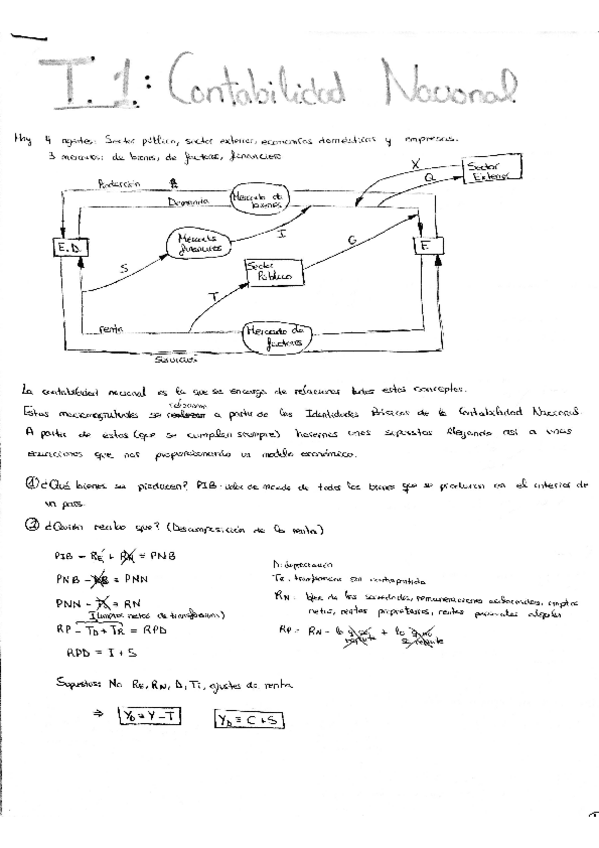 T.1: Contabilidad Nacional
Hay 4 agentes: Sector público, sector exterior, economías domésticas y empresas.
3 mercados: de bienes, de factores, financieros
X
Sector Exterior
Q
Producción
Demanda
Mercado de bienes
E.D.
Mercado financiero
I
F.
G
S
Sector Público
T
renta
Mercado de factores
Servicios
La contabilidad nacional es la que se encarga de relacionar todos estos conceptos.
relacionan
Estas macromagnitudes se a partir de las Identidades Básicas de la Contabilidad Nacional
A partir de estas (que se cumplen siempre) hacemos unos supuestos llegando así a unas
ecuaciones que nos proporcionarán un modelo económico.
① ¿Qué bienes se producen? PIB: valor de mercado de todos los bienes que se producen en el interior de
un país.
② ¿Quién recibe que? (Descomposición de la renta)
PIB - RE + RN = PNB
D: depreciación
PNB - = PNN
TR: transferencias sin contrapartida
PNN - Ti = RN
RN:
(Impuestos netos de transferencias)
RP - TD + TR = RPD
RP: RN - lo + lo
RPD = I + S
Supuestos: No RE, RN, D, Ti, ajustes de renta
⇒ YD = Y - T YD ≡ C + S